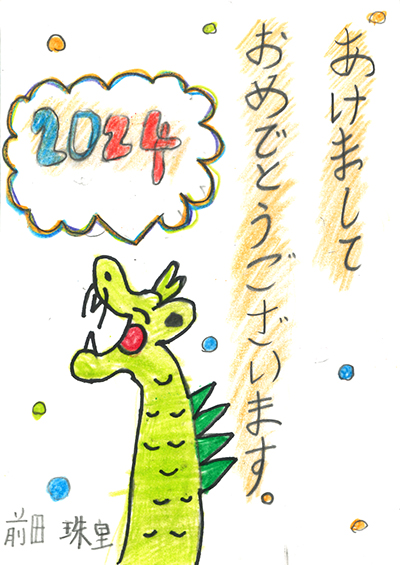 あけまして
おめでとうございます。
2024
前田 珠里